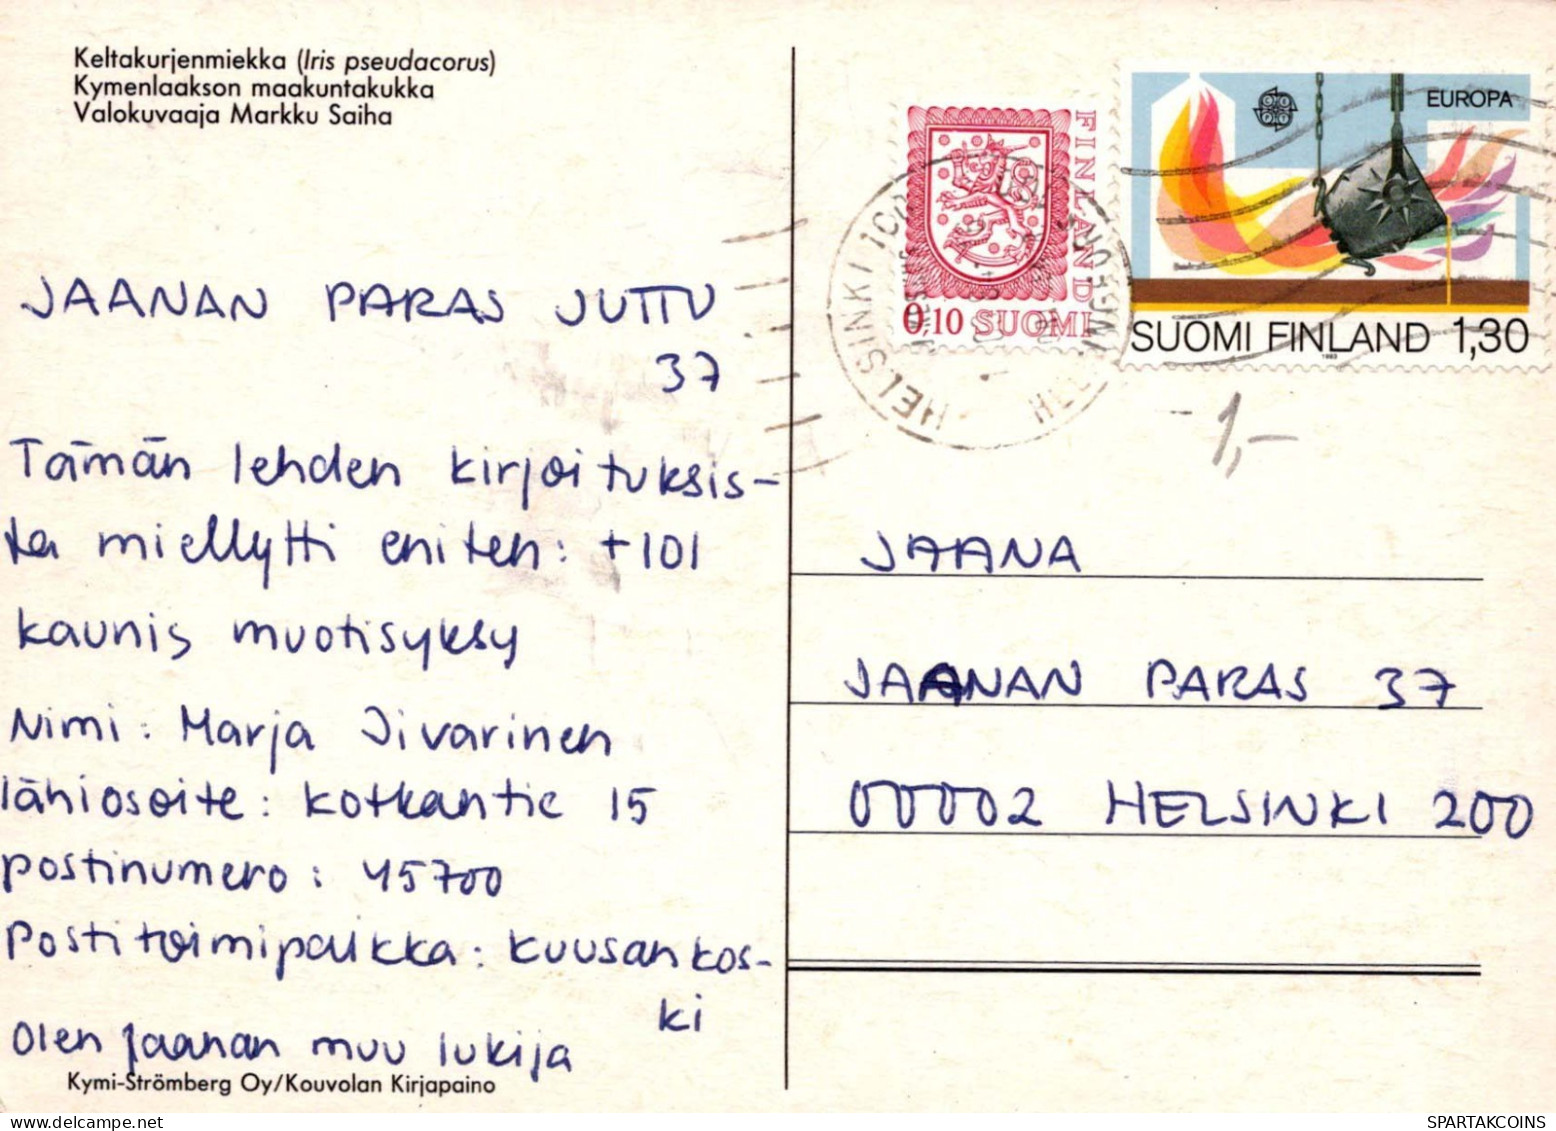 Keltakurjenmiekka (Iris pseudacorus)
Kymenlaakson maakuntakukka
Valokuvaaja Markku Saiha
JAANAN PARAS JUTTU
37
Tämän lehden kirjoituksis-
ta miellytti eniten: +101
kaunis muotisyksy
Nimi: Marja Iivarinen
lähiosoite: Kotkantie 15
postinumero: 45700
Postitoimipaikka: Kuusankos-
ki
Olen Jaanan muu lukija
Kymi-Strömberg Oy/Kouvolan Kirjapaino
FINLAND
0,10 SUOMI
HELSINKI
EUROPA
SUOMI FINLAND 1,30
1983
-1,-
JAANA
JAANAN PARAS 37
00002 HELSINKI 200
SPARTAKCOINS.COM